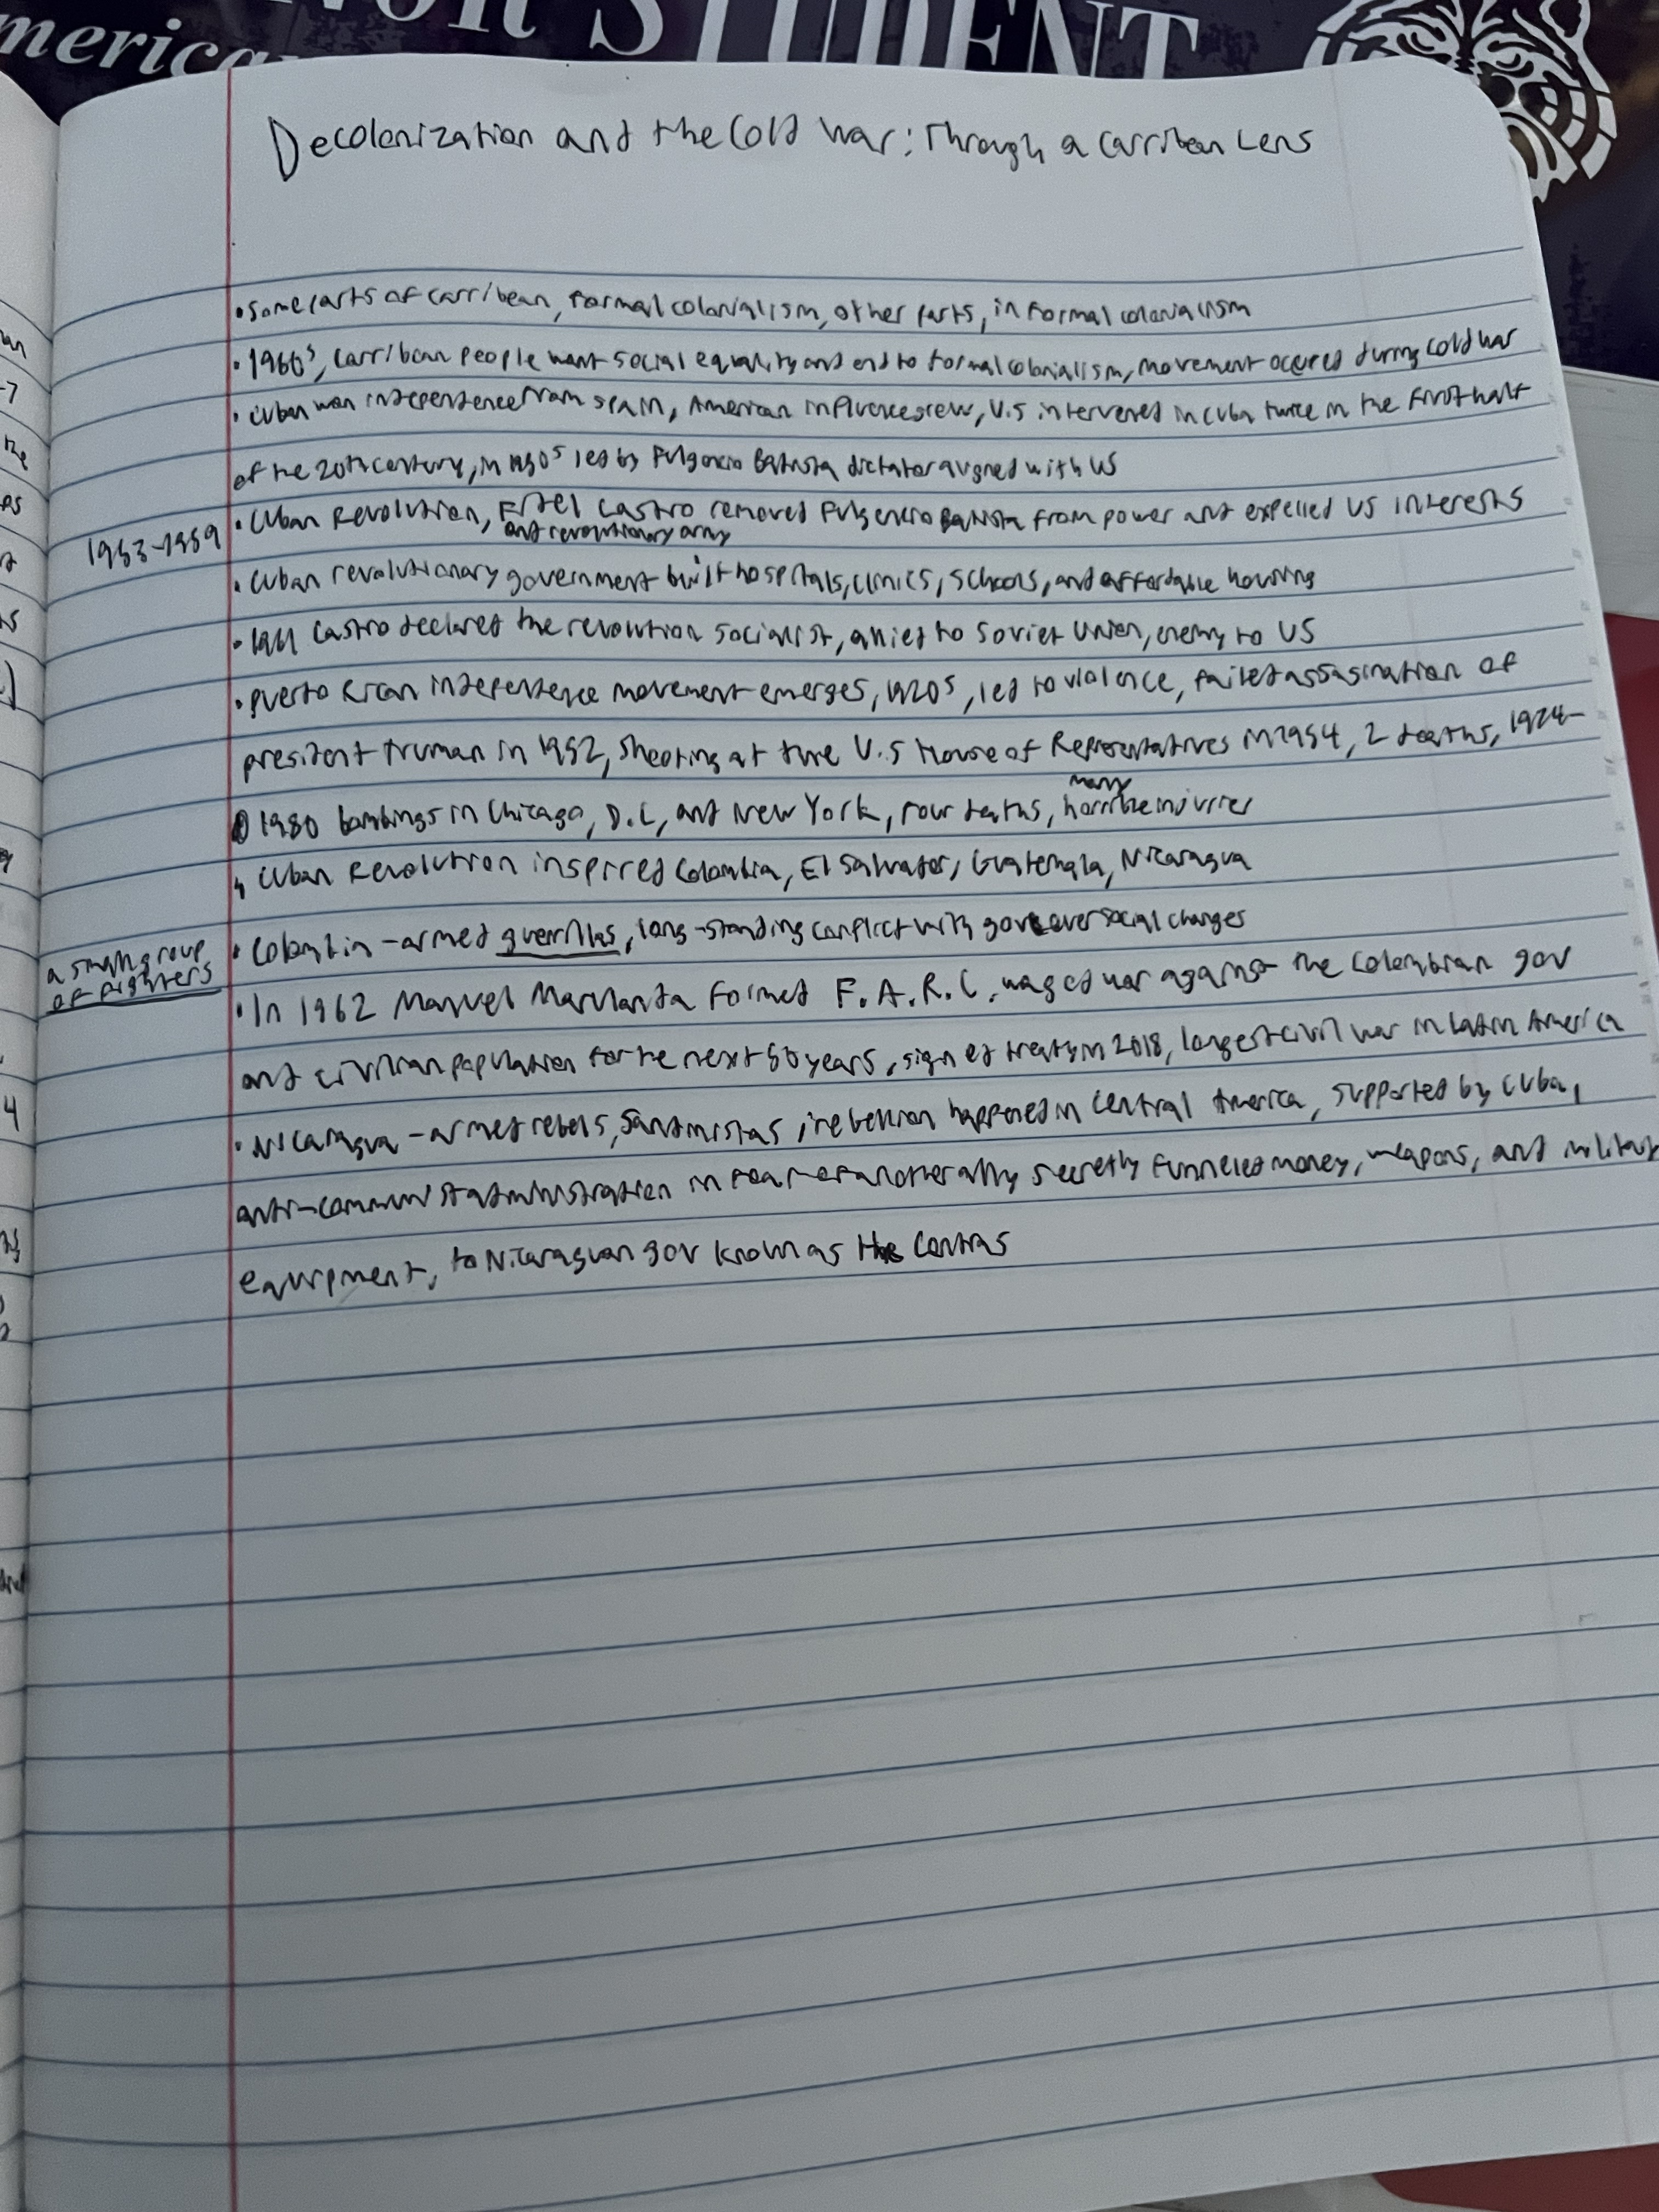 NOR STUDENT
merica
Decolonization and the Cold War: Through a Carriban Lens
• Some parts of carribean, formal colonialism, other parts, informal colonialism
• 1960s, Carriban people want social equality and end to formal colonialism, movement occured during cold war
• Cuban won independence from Spain, American influence grew, U.S intervened in Cuba twice in the first half
of the 20th century, in 1950s led by Fulgencio Batista dictator aligned with US
1953-1959
• Cuban Revolution, Fidel Castro removed Fulgencio Batista from power and expelled US interests
and revolutionary army
• Cuban revolutionary government built hospitals, clinics, schools, and affordable housing
• 1961 Castro declared the revolution socialist, allied to Soviet Union, enemy to US
• Puerto Rican independence movement emerges, 1920s, led to violence, failed assasination of
president Truman in 1952, shooting at the U.S House of Representatives in 1954, 2 deaths, 1974-
many
1980 bombings in Chicago, D.C, and New York, four deaths, horrible injuries
Cuban Revolution inspired Colombia, El Salvador, Guatemala, Nicaragua
• Colombia - armed guerrillas, long-standing conflict with gov over social changes
a small group
of fighters
• In 1962 Manuel Marulanda formed F.A.R.C. waged war against the Colombian gov
and civilian population for the next 50 years, signed treaty in 2018, longest civil war in Latin America
• Nicaragua - armed rebels, Sandinistas, rebellion happened in Central America, supported by Cuba,
anti-communist administration in fear of another ally secretly funneled money, weapons, and military
equipment, to Nicaraguan gov known as the Contras